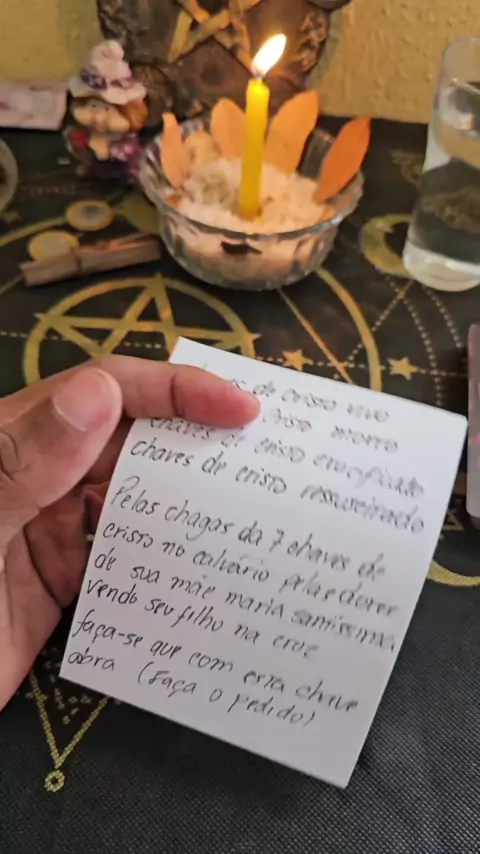 de cristo vivo
cristo morto
chaves de cristo crucificado
chaves de cristo ressuscitado
Pelas chagas da 7 chaves de
cristo no calvário pelas dores
de sua mãe maria santissima
vendo seu filho na cruz
faça-se que com esta chave
abra (Faça o pedido)